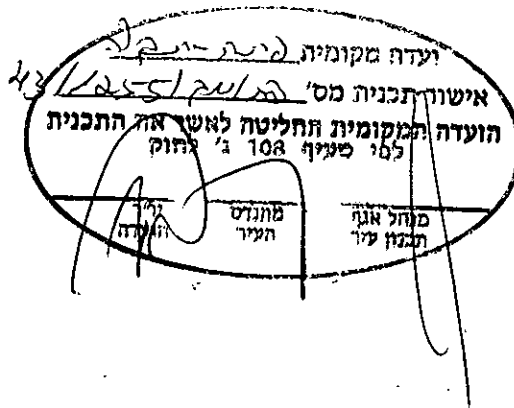 ועדה מקומית פתח-תקוה
אישור תכנית מס' פת/מק/1255/43
הועדה המקומית החליטה לאשר את התכנית
לפי סעיף 108 ג' לחוק
מנהל אגף מהנדס יו"ר
תכנון עיר העיר הועדה